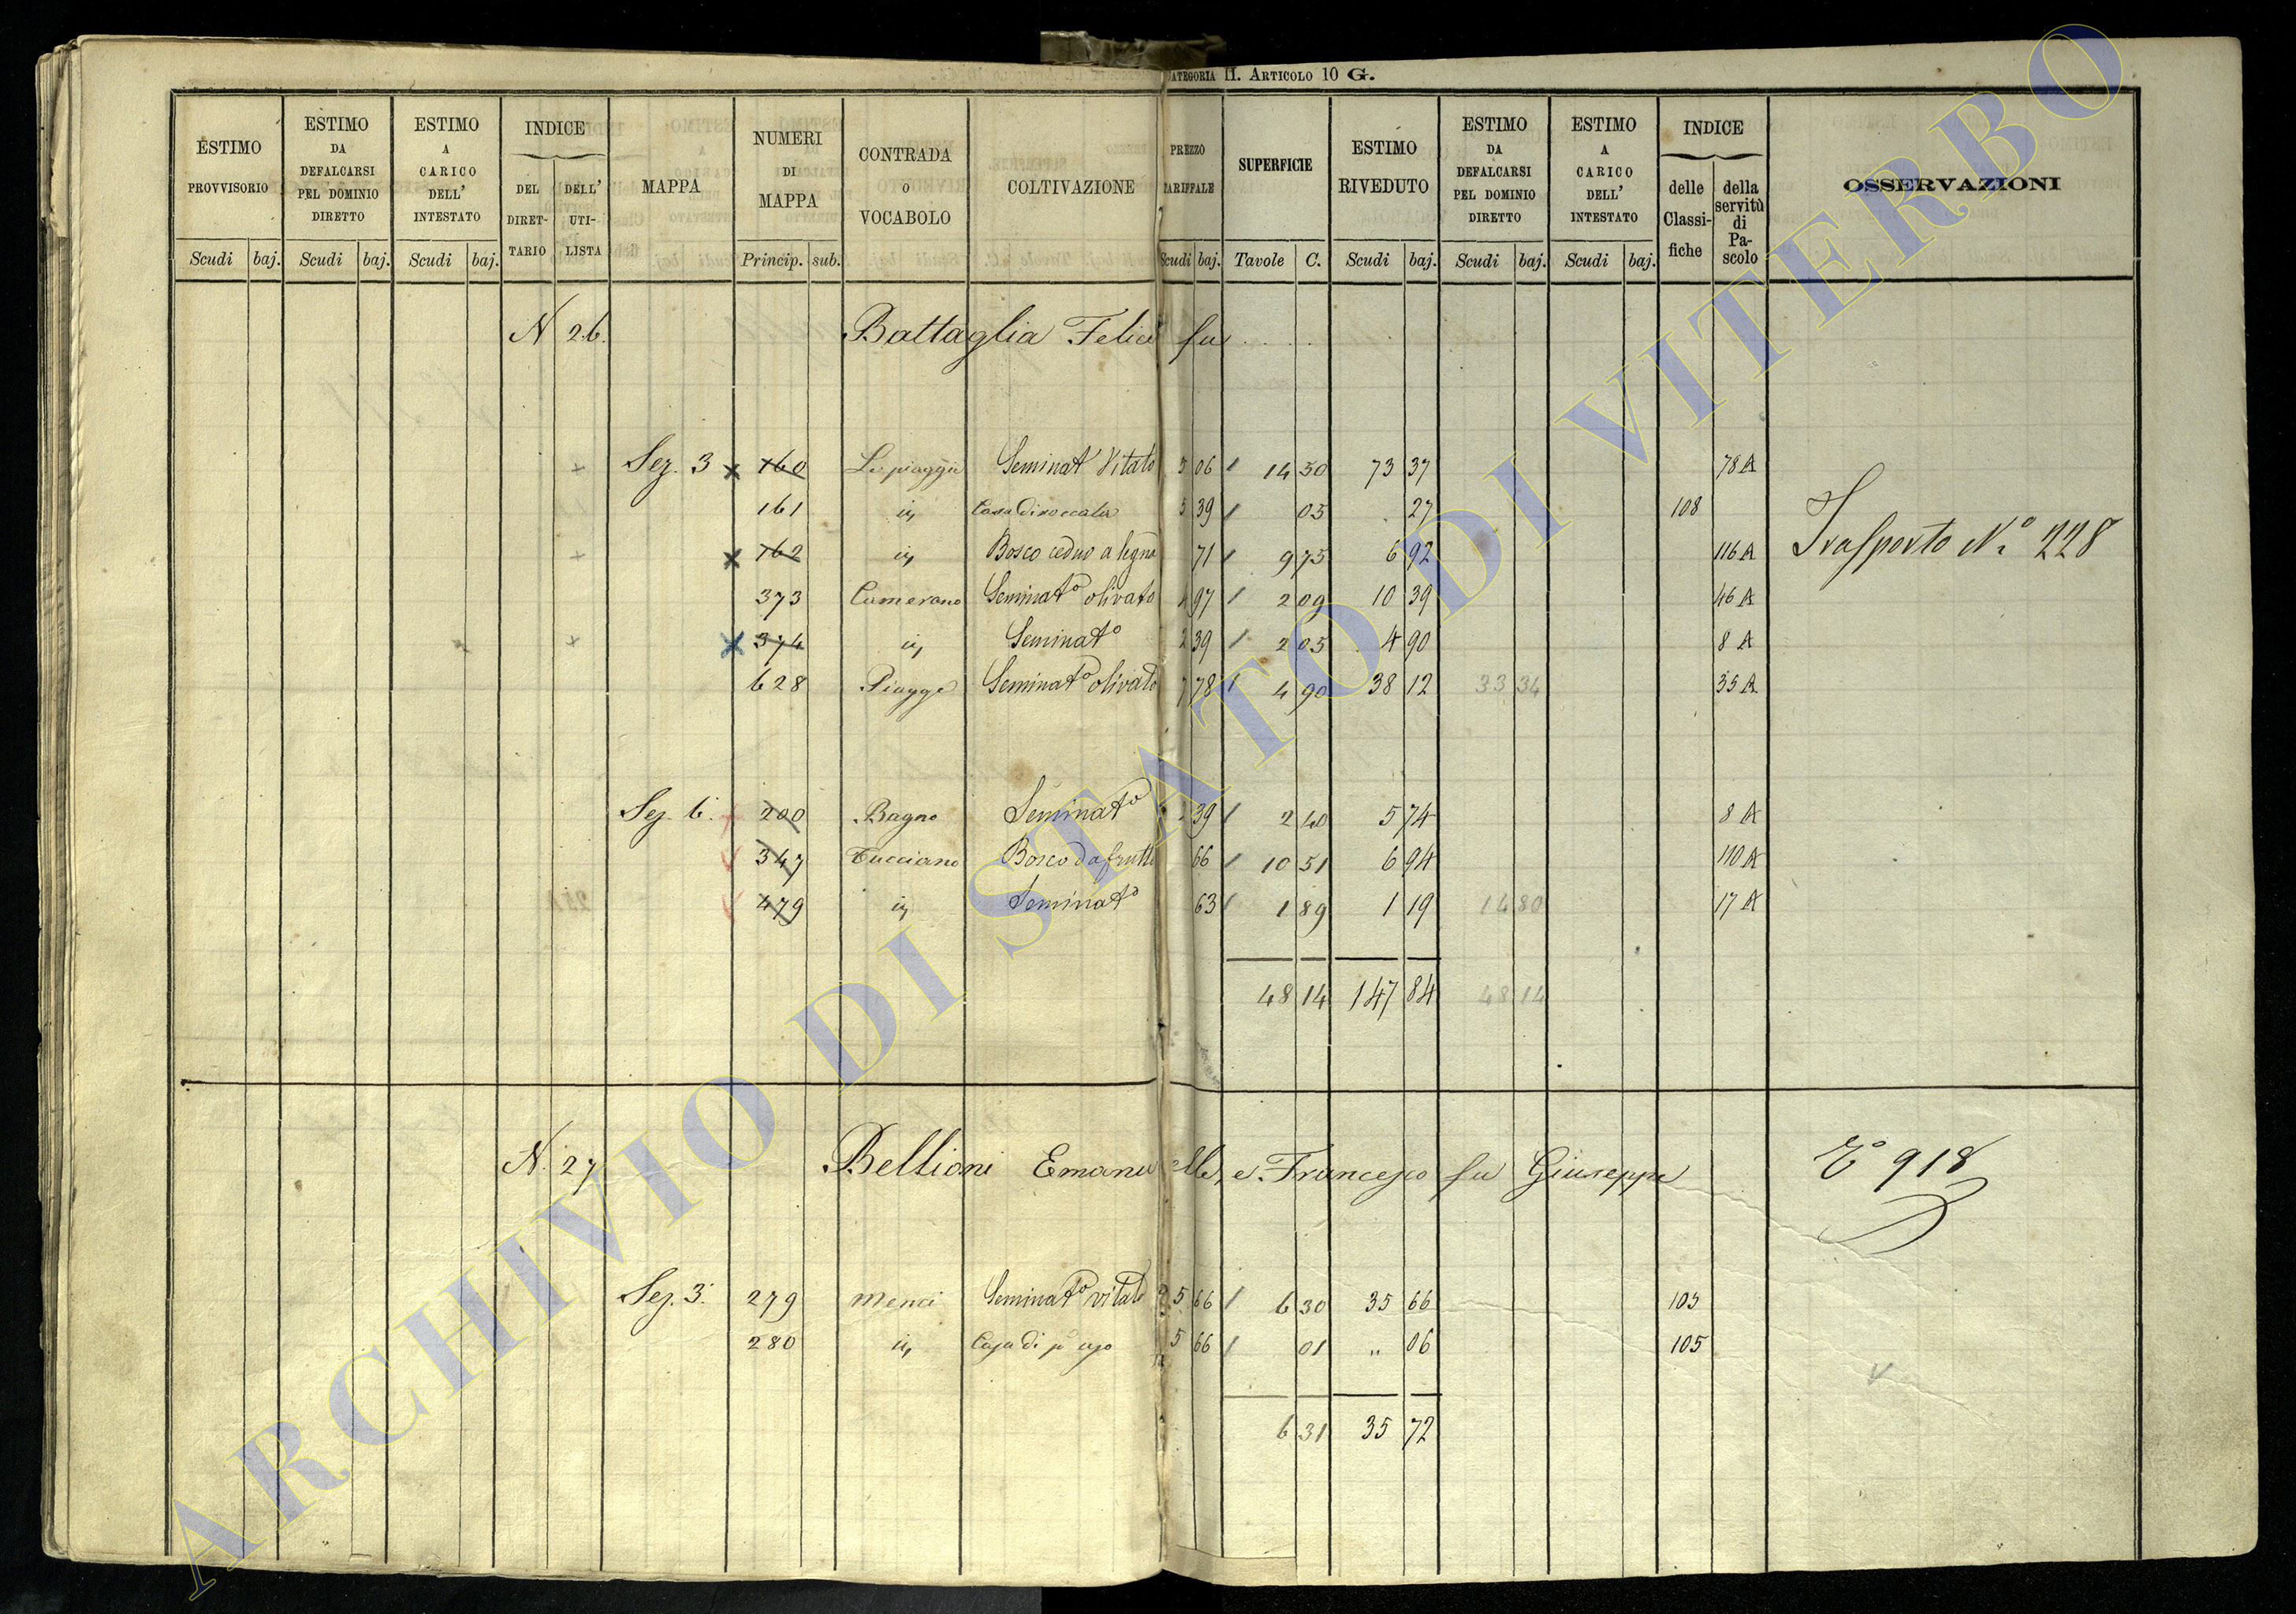 CATEGORIA II. ARTICOLO 10 G.
ESTIMO PROVVISORIO Scudi baj.
ESTIMO DA DEFALCARSI PEL DOMINIO DIRETTO Scudi baj.
ESTIMO A CARICO DELL' INTESTATO Scudi baj.
INDICE DEL DIRET-TARIO DELL' UTI-LISTA
MAPPA
NUMERI DI MAPPA Princip. sub.
CONTRADA O VOCABOLO
COLTIVAZIONE
PREZZO TARIFFALE Scudi baj.
SUPERFICIE Tavole C.
ESTIMO RIVEDUTO Scudi baj.
ESTIMO DA DEFALCARSI PEL DOMINIO DIRETTO Scudi baj.
ESTIMO A CARICO DELL' INTESTATO Scudi baj.
INDICE delle Classi-fiche della servitù di Pa-scolo
OSSERVAZIONI
N 26. Battaglia Felice fu . . . .
Sez. 3 x 160 Le piaggie Seminat° Vitato 5 06 / 14 50 73 37 78 A
161 id Casa diroccata 5 39 / 05 . 27 108
Trasporto N.° 228
x 162 id Bosco ceduo a legna 71 / 9 75 6 92 116 A
373 Camerano Seminat° olivato 4 97 / 2 09 10 39 46 A
x 374 id Seminat° 2 39 / 2 05 4 90 8 A
628 Piagge Seminat° olivato 7 78 / 4 90 38 12 33 34 35 A
Sez. 6. 200 Bagno Seminat° 2 39 / 2 40 5 74 8 A
347 Tucciano Bosco da frutti 66 / 10 51 6 94 110 A
479 id Seminat° 63 / 1 89 1 19 14 80 17 A
48 14 147 84 48 14
N. 27 Bellioni Emanuelle, e Francesco fu Giuseppe
E° 918
Sez. 3. 279 Menci Seminat° vitato 5 66 / 6 30 35 66 105
280 id Casa di p° uso 5 66 / 01 „ 06 105
6 31 35 72
ARCHIVIO DI STATO DI VITERBO